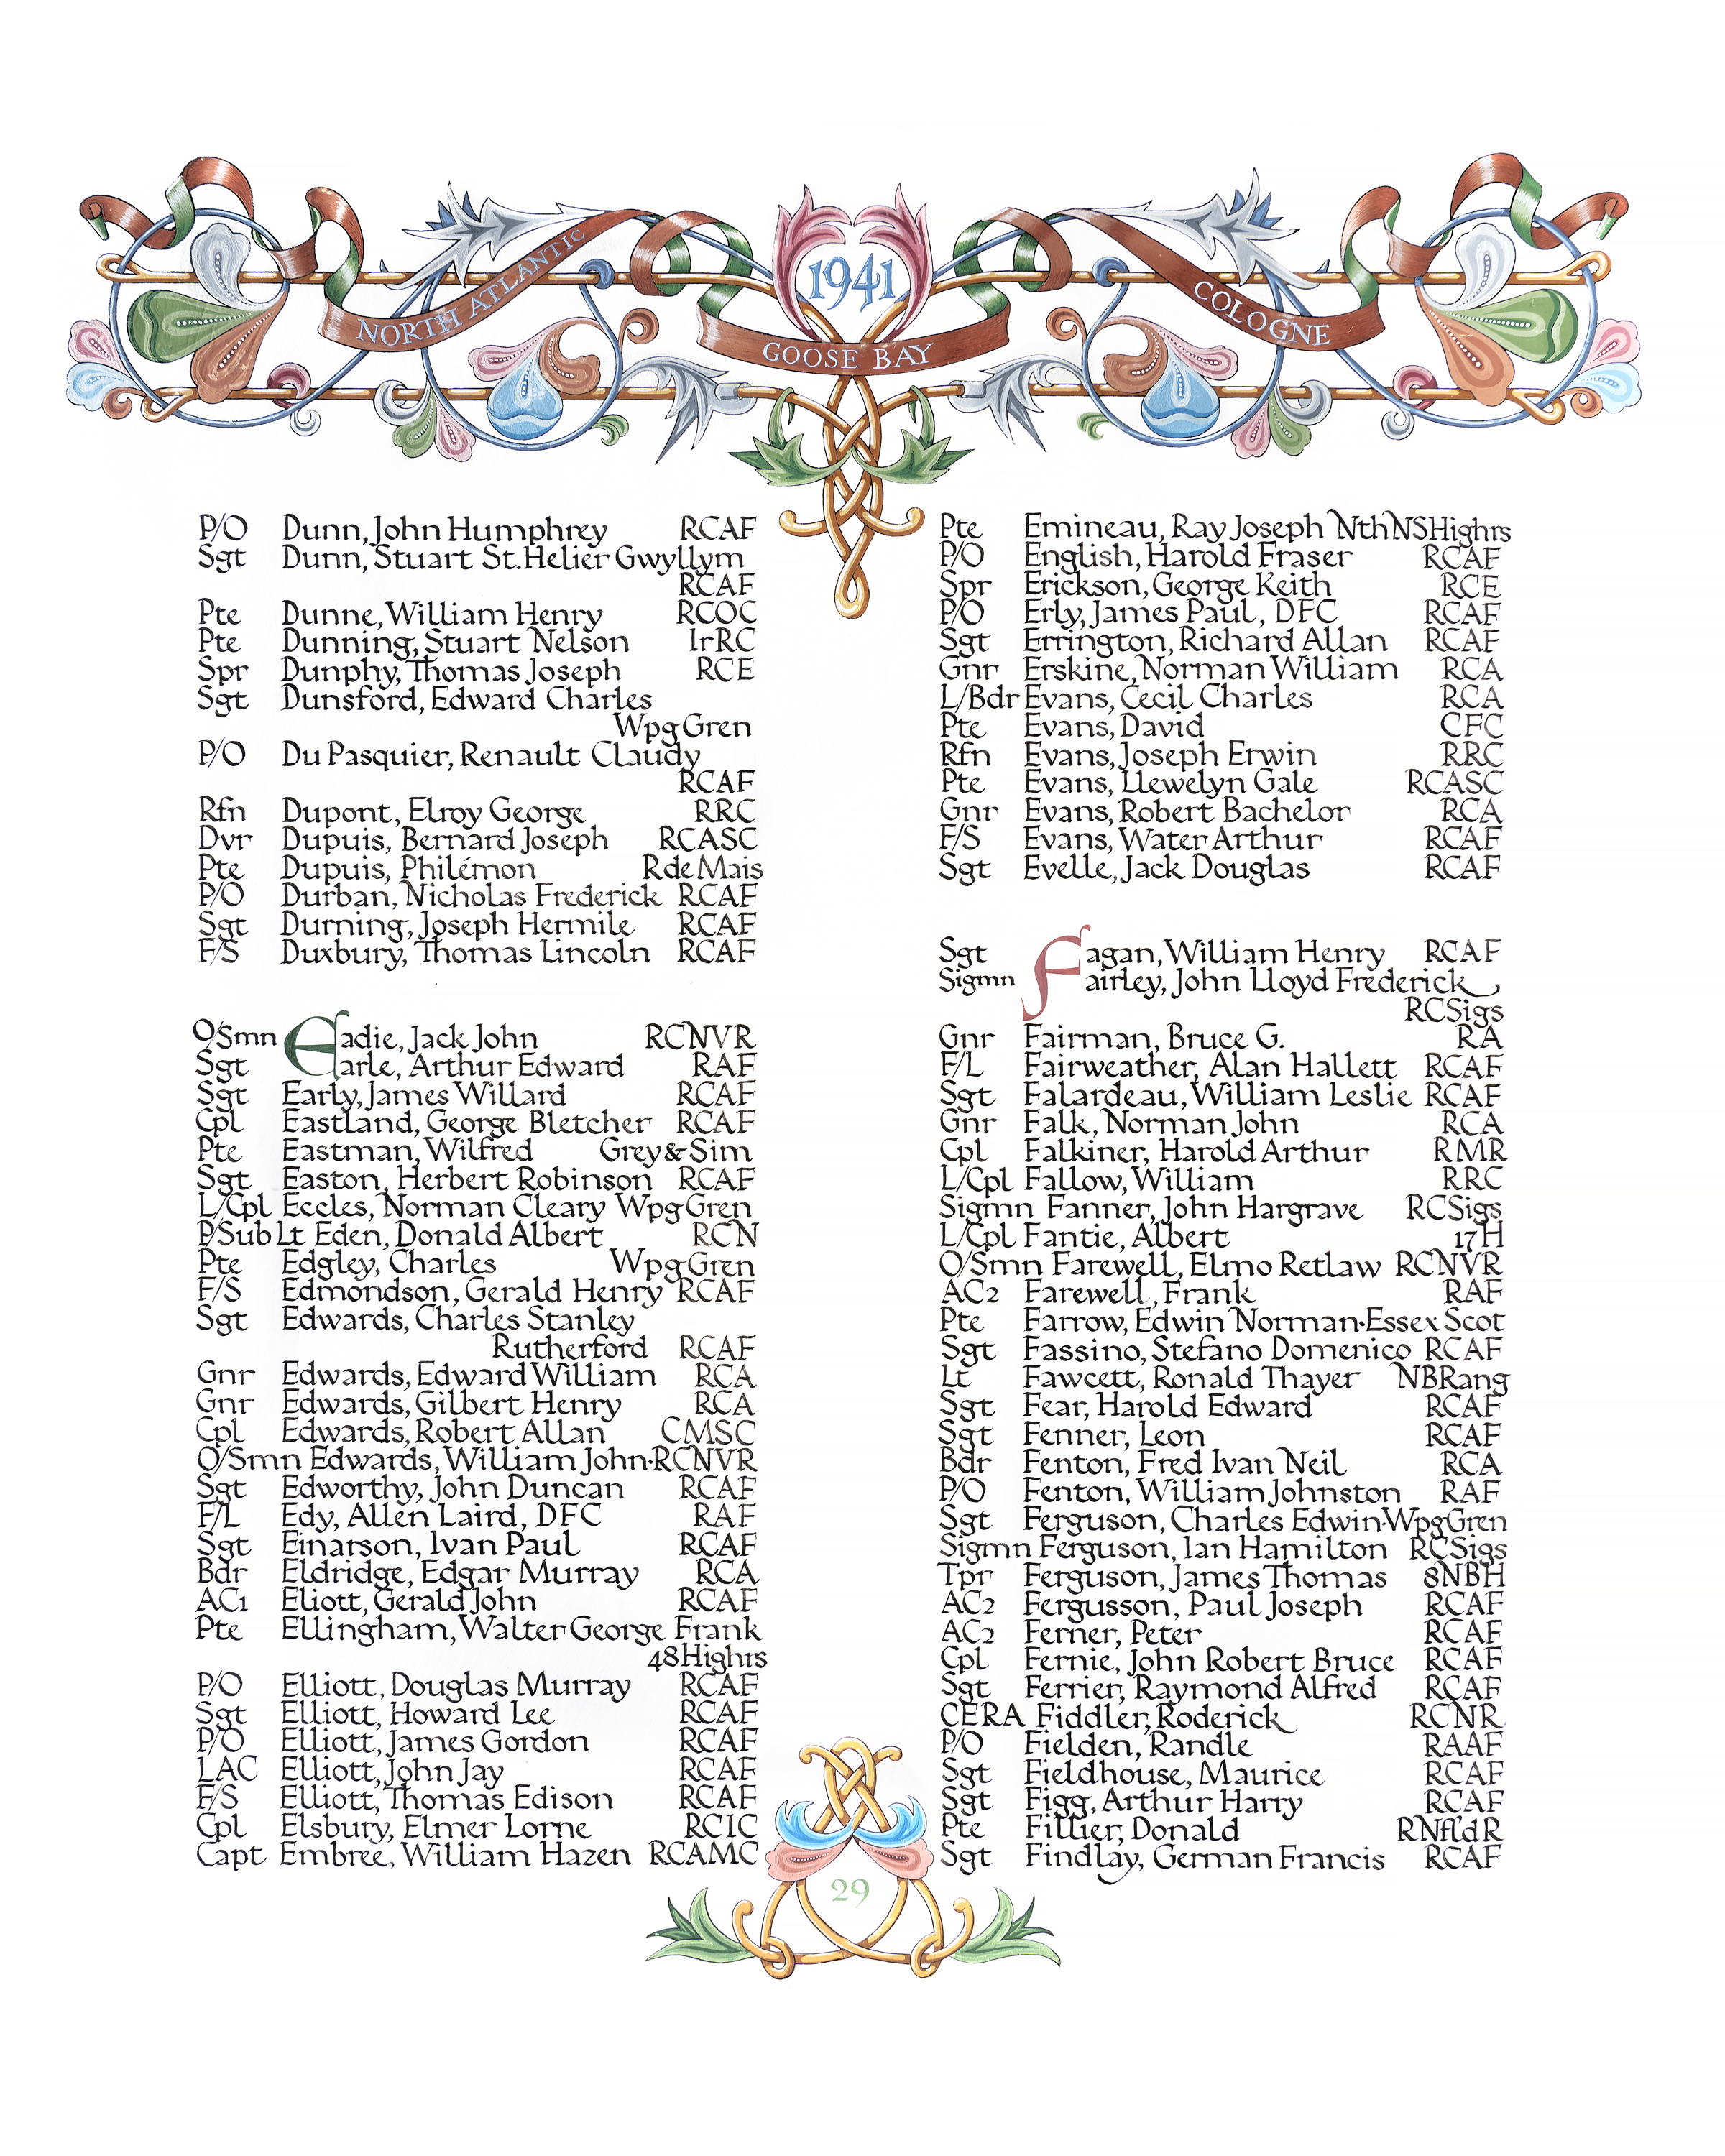 1941
NORTH ATLANTIC
GOOSE BAY
COLOGNE
P/O Dunn, John Humphrey RCAF
Sgt Dunn, Stuart St. Helier Gwyllym
RCAF
Pte Dunne, William Henry RCOC
Pte Dunning, Stuart Nelson IrRC
Spr Dunphy, Thomas Joseph RCE
Sgt Dunsford, Edward Charles
Wpg Gren
P/O Du Pasquier, Renault Claudy
RCAF
Rfn Dupont, Elroy George RRC
Dvr Dupuis, Bernard Joseph RCASC
Pte Dupuis, Philémon R de Mais
P/O Durban, Nicholas Frederick RCAF
Sgt Durning, Joseph Hermile RCAF
F/S Duxbury, Thomas Lincoln RCAF
O/Smn Eadie, Jack John RCNVR
Sgt Earle, Arthur Edward RAF
Sgt Early, James Willard RCAF
Cpl Eastland, George Bletcher RCAF
Pte Eastman, Wilfred Grey & Sim
Sgt Easton, Herbert Robinson RCAF
L/Cpl Eccles, Norman Cleary Wpg Gren
P/Sub Lt Eden, Donald Albert RCN
Pte Edgley, Charles Wpg Gren
F/S Edmondson, Gerald Henry RCAF
Sgt Edwards, Charles Stanley
Rutherford RCAF
Gnr Edwards, Edward William RCA
Gnr Edwards, Gilbert Henry RCA
Cpl Edwards, Robert Allan CMSC
O/Smn Edwards, William John·RCNVR
Sgt Edworthy, John Duncan RCAF
F/L Edy, Allen Laird, DFC RAF
Sgt Einarson, Ivan Paul RCAF
Bdr Eldridge, Edgar Murray RCA
AC1 Eliott, Gerald John RCAF
Pte Ellingham, Walter George Frank
48 Highrs
P/O Elliott, Douglas Murray RCAF
Sgt Elliott, Howard Lee RCAF
P/O Elliott, James Gordon RCAF
LAC Elliott, John Jay RCAF
F/S Elliott, Thomas Edison RCAF
Cpl Elsbury, Elmer Lorne RCIC
Capt Embree, William Hazen RCAMC
Pte Emineau, Ray Joseph Nth NS Highrs
P/O English, Harold Fraser RCAF
Spr Erickson, George Keith RCE
P/O Erly, James Paul, DFC RCAF
Sgt Errington, Richard Allan RCAF
Gnr Erskine, Norman William RCA
L/Bdr Evans, Cecil Charles RCA
Pte Evans, David CFC
Rfn Evans, Joseph Erwin RRC
Pte Evans, Llewelyn Gale RCASC
Gnr Evans, Robert Bachelor RCA
F/S Evans, Water Arthur RCAF
Sgt Evelle, Jack Douglas RCAF
Sgt Fagan, William Henry RCAF
Sigmn Fairley, John Lloyd Frederick
RCSigs
Gnr Fairman, Bruce G. RA
F/L Fairweather, Alan Hallett RCAF
Sgt Falardeau, William Leslie RCAF
Gnr Falk, Norman John RCA
Cpl Falkiner, Harold Arthur RMR
L/Cpl Fallow, William RRC
Sigmn Fanner, John Hargrave RCSigs
L/Cpl Fantie, Albert 17 H
O/Smn Farewell, Elmo Retlaw RCNVR
AC2 Farewell, Frank RAF
Pte Farrow, Edwin Norman·Essex Scot
Sgt Fassino, Stefano Domenico RCAF
Lt Fawcett, Ronald Thayer NBRang
Sgt Fear, Harold Edward RCAF
Sgt Fenner, Leon RCAF
Bdr Fenton, Fred Ivan Neil RCA
P/O Fenton, William Johnston RAF
Sgt Ferguson, Charles Edwin·Wpg Gren
Sigmn Ferguson, Ian Hamilton RCSigs
Tpr Ferguson, James Thomas 8NBH
AC2 Fergusson, Paul Joseph RCAF
AC2 Ferner, Peter RCAF
Cpl Fernie, John Robert Bruce RCAF
Sgt Ferrier, Raymond Alfred RCAF
CERA Fiddler, Roderick RCNR
P/O Fielden, Randle RAAF
Sgt Fieldhouse, Maurice RCAF
Sgt Figg, Arthur Harry RCAF
Pte Fillier, Donald RNfldR
Sgt Findlay, German Francis RCAF
29